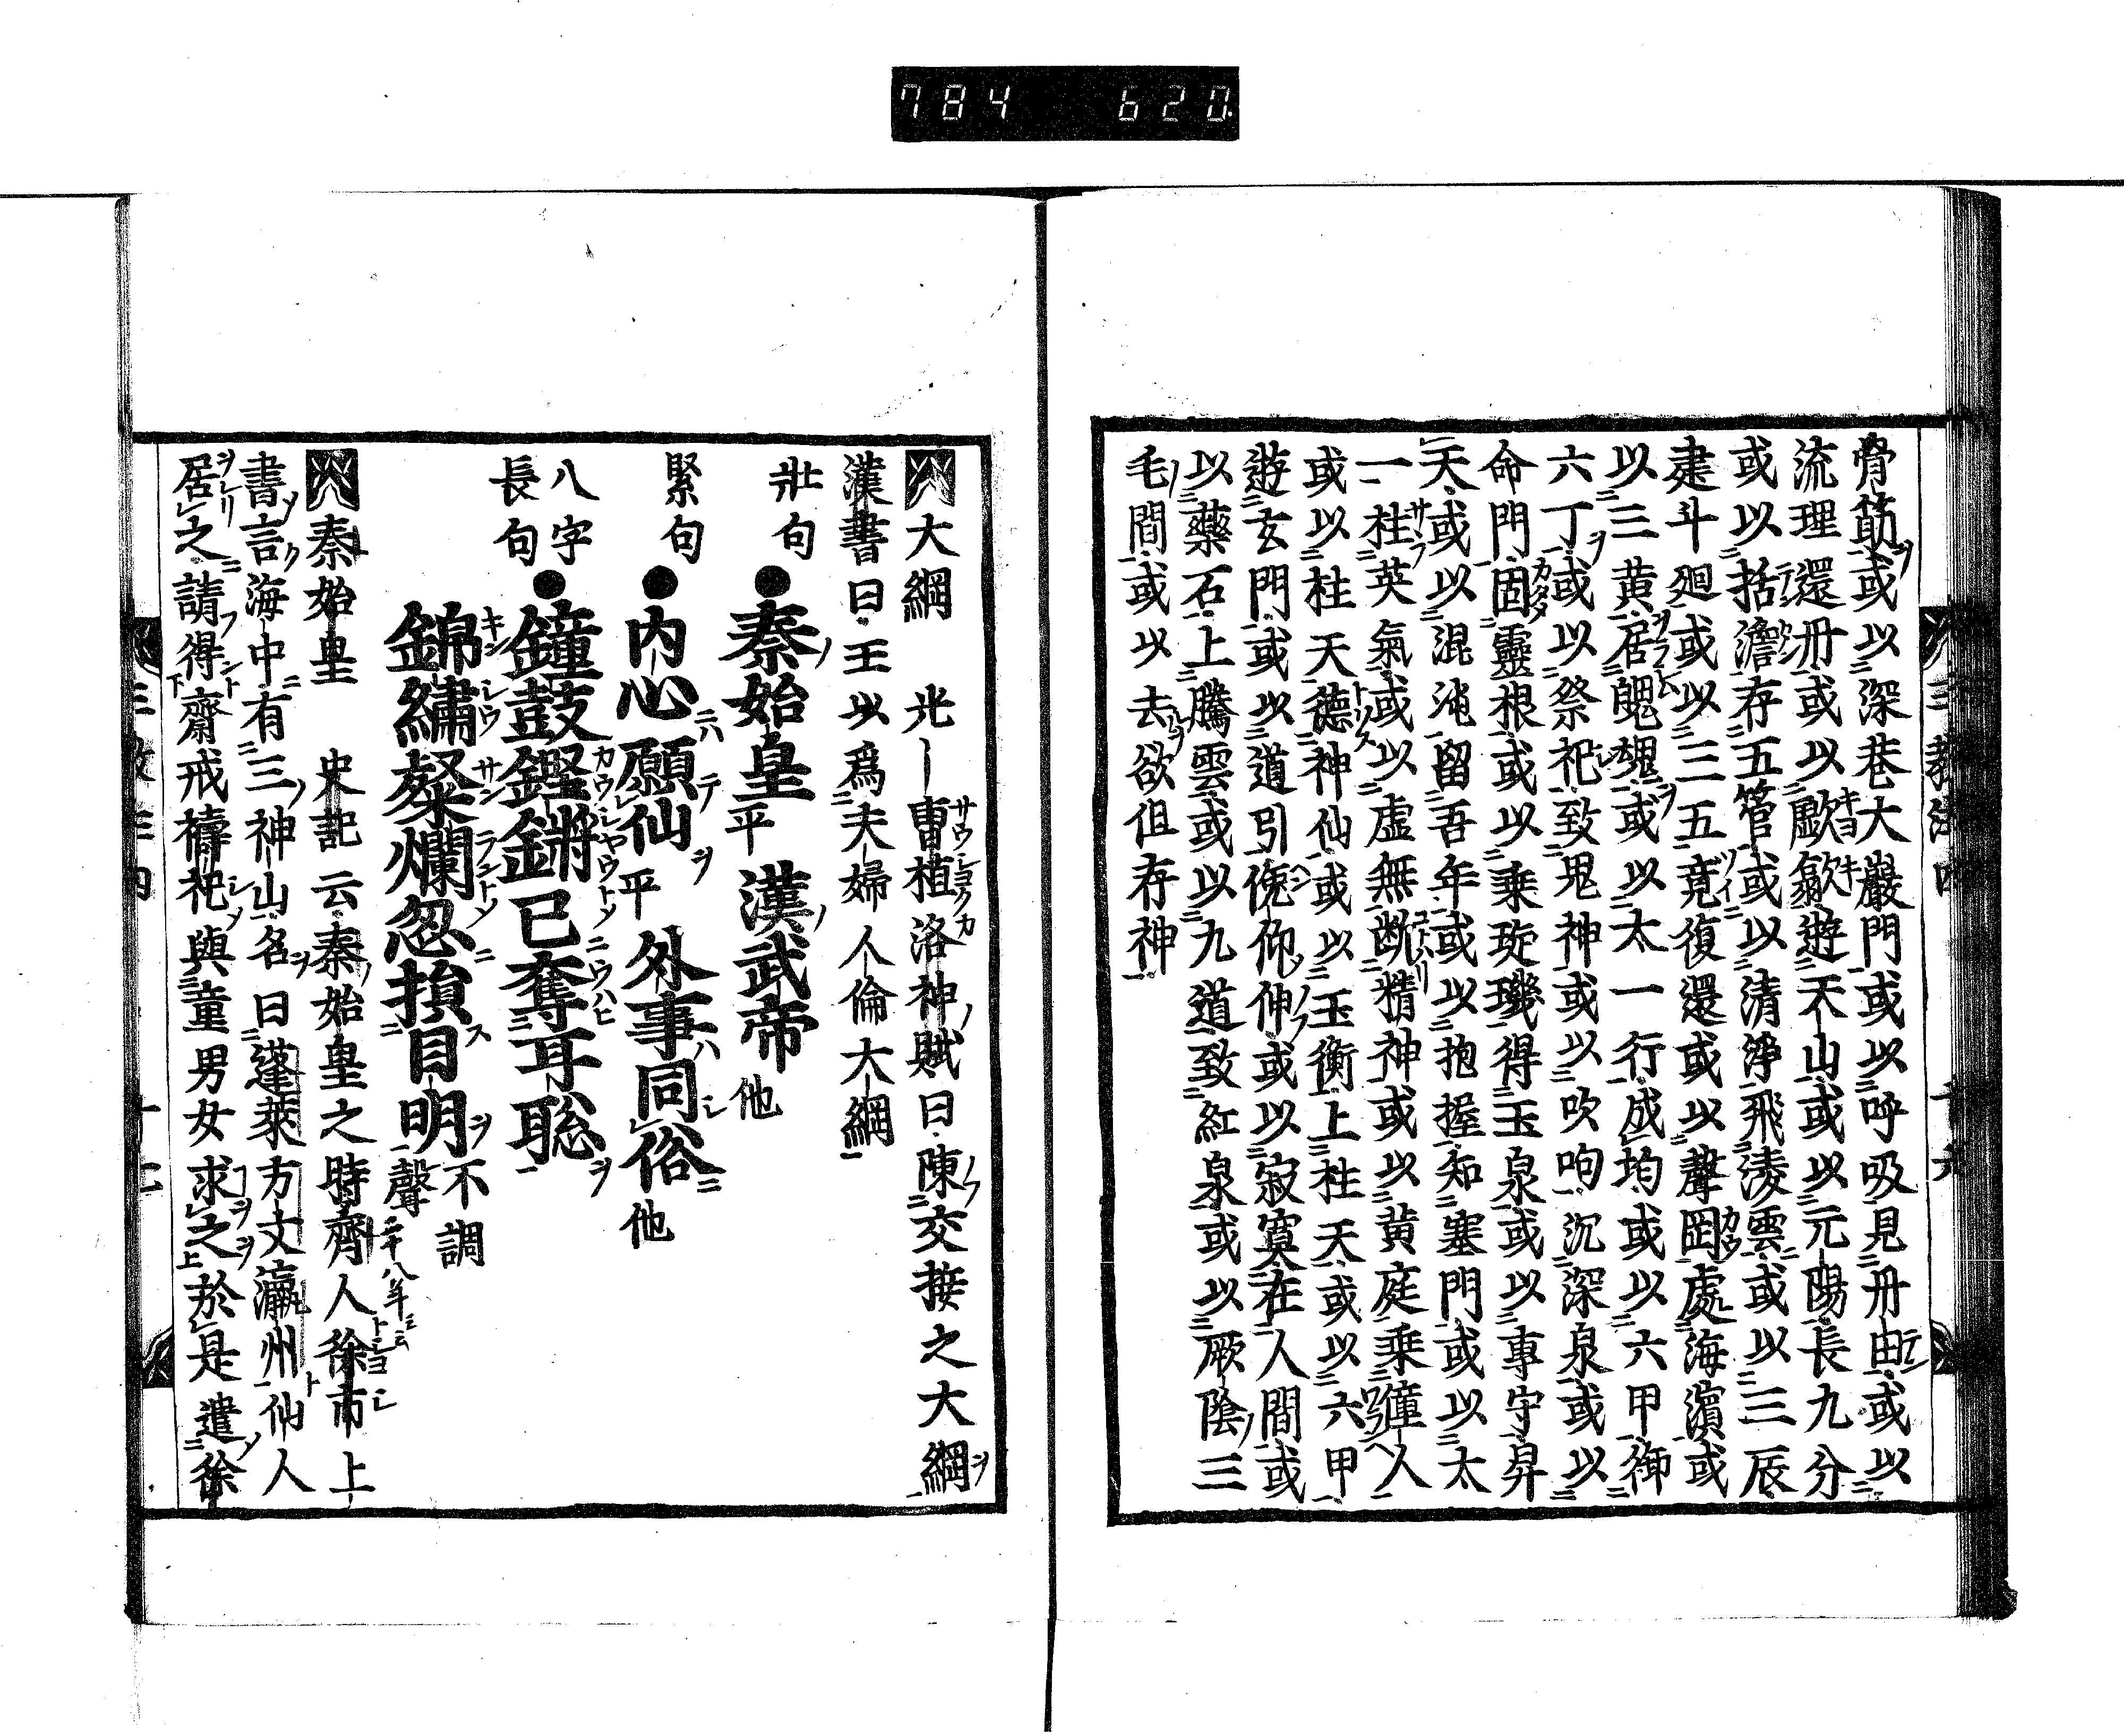 784 620
骨筋或以深巷大巖門或以呼吸見丹田或以
流理還丹或以歔翕遊不山或以元陽長九分
或以括澹存五管或以清淨飛淩雲或以三辰
建斗廻或以三五竟復還或以聲罔處海濱或
以三黃居魄魂或以太一行成均或以六甲御
六丁或以祭祀致鬼神或以吹呴沉深泉或以
命門固靈根或以乘琁璣得玉泉或以專守昇
天或以混沌留吾年或以抱握知塞門或以太
一柱英氣或以虛無斷精神或以黃庭乘僮人
或以柱天德神仙或以玉衡上柱天或以六甲
遊玄門或以道引俛仰伸或以寂寞在人間或
以藥石上騰雲或以九道致紅泉或以厥陰三
毛間或以去欲但存神
大綱 光 曹植洛神賦曰陳交接之大綱
漢書曰王以爲夫婦人倫大綱
壯句 ●秦始皇平 漢武帝他
緊句 ●内心願仙平 外事同俗他
八字長句 ●鐘鼓鏗鏘已奪耳聡
錦繡粲爛忽損目明 不調聲
秦始皇 史記云秦始皇之時齊人徐市上
二十八年云云
書言海中有三神山名曰蓬萊方丈瀛州仙人
居之請得齋戒禱祀與童男女求之於是遣徐